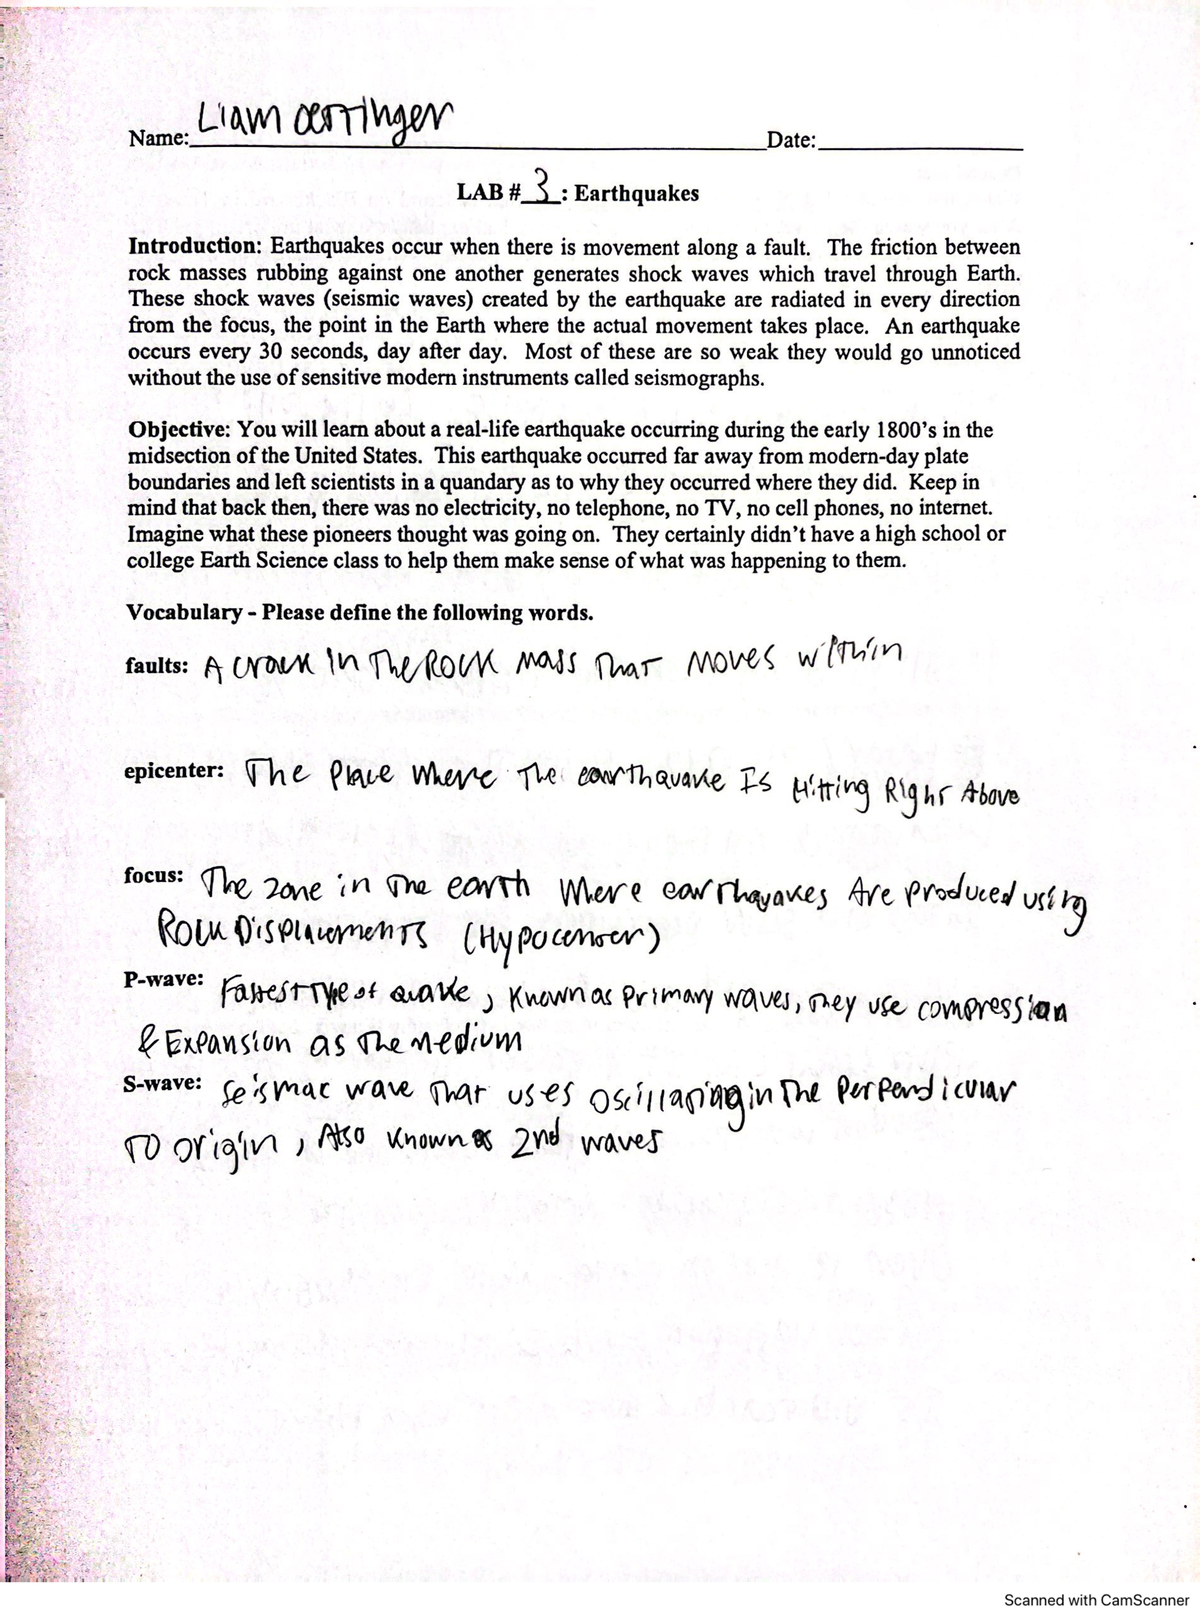 Name: Liam Oettinger Date:
LAB # 3 : Earthquakes
Introduction: Earthquakes occur when there is movement along a fault. The friction between
rock masses rubbing against one another generates shock waves which travel through Earth.
These shock waves (seismic waves) created by the earthquake are radiated in every direction
from the focus, the point in the Earth where the actual movement takes place. An earthquake
occurs every 30 seconds, day after day. Most of these are so weak they would go unnoticed
without the use of sensitive modern instruments called seismographs.
Objective: You will learn about a real-life earthquake occurring during the early 1800's in the
midsection of the United States. This earthquake occurred far away from modern-day plate
boundaries and left scientists in a quandary as to why they occurred where they did. Keep in
mind that back then, there was no electricity, no telephone, no TV, no cell phones, no internet.
Imagine what these pioneers thought was going on. They certainly didn't have a high school or
college Earth Science class to help them make sense of what was happening to them.
Vocabulary - Please define the following words.
faults: A crack in the Rock mass that moves within
epicenter: The place where the earthquake Is Hitting Right Above
focus: The zone in the earth where earthquakes Are produced using
Rock Displacements (Hypocenter)
P-wave: Fastest Type of quake, known as primary waves, they use compression
& Expansion as the medium
S-wave: Seismac wave that uses oscillating in the Perpendicular
TO origin, Also known as 2nd waves
Scanned with CamScanner